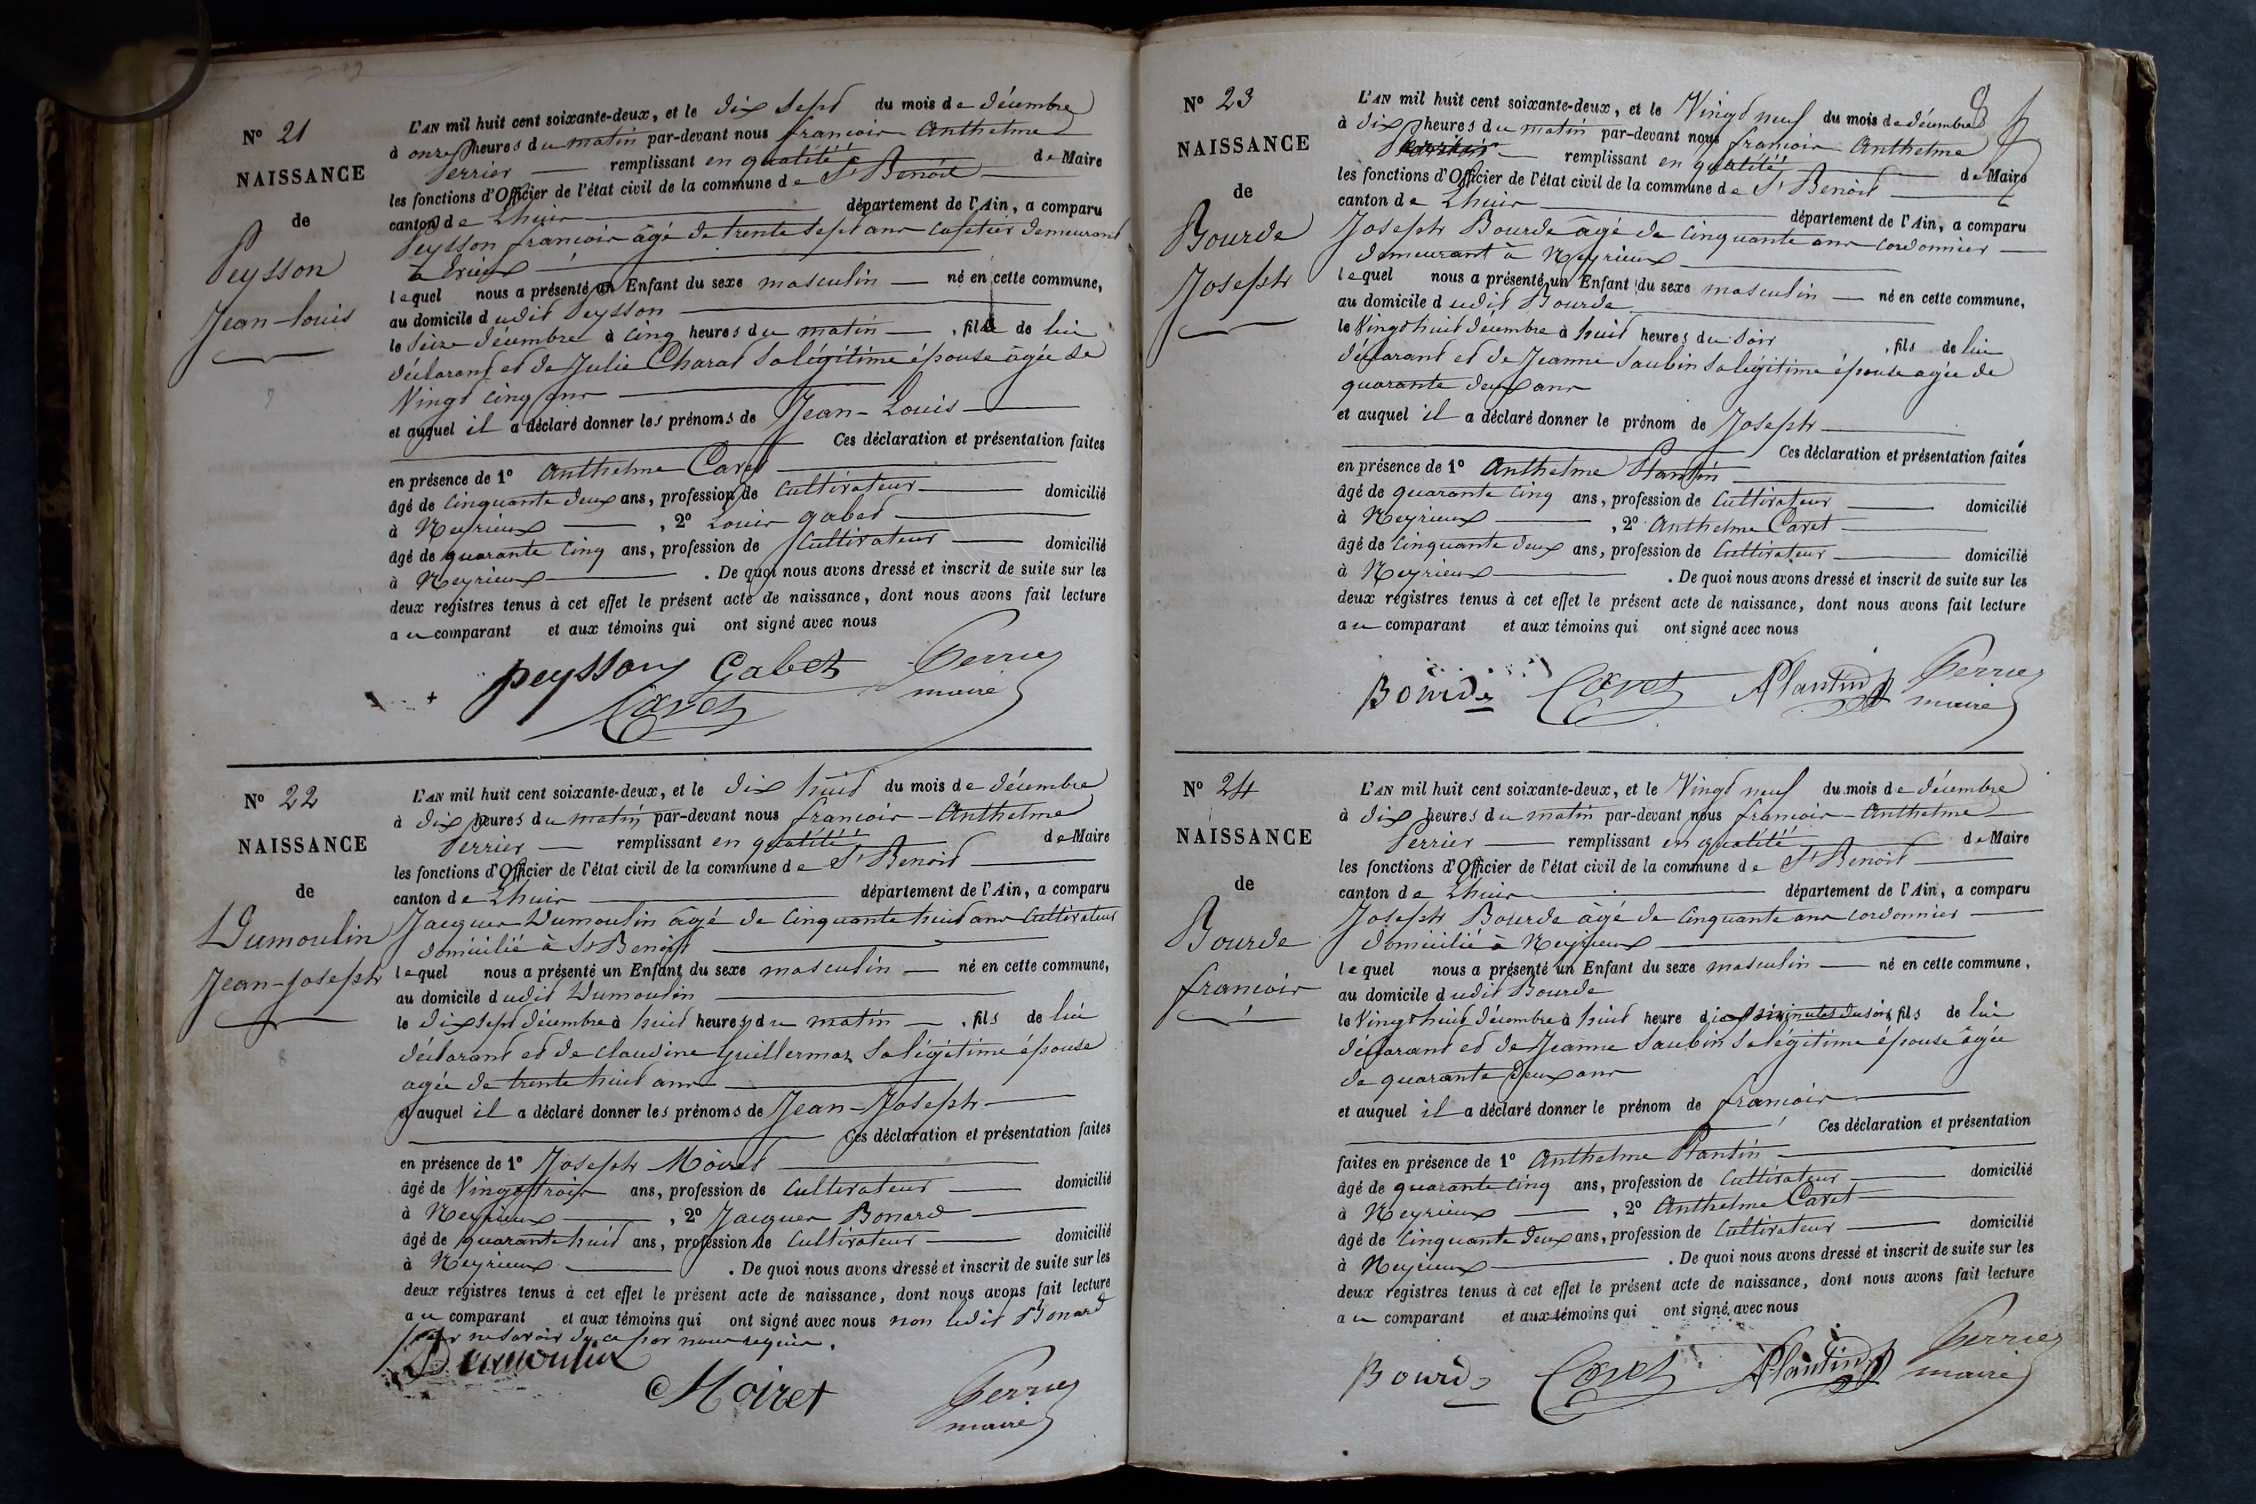 N° 21
NAISSANCE
de
Peysson
Jean-Louis
L'AN mil huit cent soixante-deux, et le dix sept du mois de décembre
à onze heures du matin par-devant nous françois Anthelme
Perrier remplissant en qualitéé de Maire
les fonctions d'Officier de l'état civil de la commune de St Benoit
canton de Lhuis département de l'Ain, a comparu
Peysson françois âgé de trente sept ans cafetier demeurant
à
lequel nous a présenté un Enfant du sexe masculin né en cette commune,
au domicile dudit Peysson
le seize décembre à cinq heures du matin , fils de lui
déclarant et de Julie Charat sa légitime épouse âgée de
Vingt cinq ans
et auquel il a déclaré donner les prénoms de Jean-Louis
Ces déclaration et présentation faites
en présence de 1° Anthelme Cavet
âgé de cinquante deux ans, profession de Cultivateur domicilié
à Neyrieux , 2° Louis gabet
âgé de quarante cinq ans, profession de Cultivateur domicilié
à Neyrieux . De quoi nous avons dressé et inscrit de suite sur les
deux registres tenus à cet effet le présent acte de naissance, dont nous avons fait lecture
au comparant et aux témoins qui ont signé avec nous
peysson Gabet Perrier
Cavet maire
N° 22
NAISSANCE
de
Dumoulin
Jean-Joseph
L'AN mil huit cent soixante-deux, et le dix huit du mois de décembre
à dix heures du matin par-devant nous françois-Anthelme
Perrier remplissant en qualitéé de Maire
les fonctions d'Officier de l'état civil de la commune de St Benoit
canton de Lhuis département de l'Ain, a comparu
Jacques Dumoulin âgé de cinquante huit ans Cultivateur
domicilié à St Benoit
lequel nous a présenté un Enfant du sexe masculin né en cette commune,
au domicile dudit Dumoulin
le dix sept décembre à huit heures du matin , fils de lui
déclarant et de claudine Guillermoz sa légitime épouse
agée de trente huit ans
et auquel il a déclaré donner les prénoms de Jean-Joseph
Ces déclaration et présentation faites
en présence de 1° Joseph Moiret
âgé de Vingt trois ans, profession de Cultivateur domicilié
à Neyrieux , 2° Jacques Bonard
âgé de quarante huit ans, profession de Cultivateur domicilié
à Neyrieux . De quoi nous avons dressé et inscrit de suite sur les
deux registres tenus à cet effet le présent acte de naissance, dont nous avons fait lecture
au comparant et aux témoins qui ont signé avec nous non ledit Bonard
pour ne savoir de ce par nous requis.
Dumoulin
Moiret Perrier
maire
N° 23
NAISSANCE
de
Bourde
Joseph
L'AN mil huit cent soixante-deux, et le Vingt neuf du mois de décembre
à dix heures du matin par-devant nous françois Anthelme
Perrier remplissant en qualitéé de Maire
les fonctions d'Officier de l'état civil de la commune de St Benoit
canton de Lhuis département de l'Ain, a comparu
Joseph Bourde âgé de cinquante ans cordonnier
demeurant à Neyrieux
lequel nous a présenté un Enfant du sexe masculin né en cette commune,
au domicile dudit Bourde
le Vingt huit décembre à huit heures du soir , fils de lui
déclarant et de Jeanne Saubin sa légitime épouse agée de
quarante deux ans
et auquel il a déclaré donner le prénom de Joseph
Ces déclaration et présentation faites
en présence de 1° Anthelme Plantin
âgé de quarante cinq ans, profession de Cultivateur domicilié
à Neyrieux , 2° Anthelme Cavet
âgé de cinquante deux ans, profession de Cultivateur domicilié
à Neyrieux . De quoi nous avons dressé et inscrit de suite sur les
deux registres tenus à cet effet le présent acte de naissance, dont nous avons fait lecture
au comparant et aux témoins qui ont signé avec nous
Bourde Cavet Plantin Perrier
maire
N° 24
NAISSANCE
de
Bourde
françois
L'AN mil huit cent soixante-deux, et le Vingt neuf du mois de décembre
à dix heures du matin par-devant nous françois-Anthelme
Perrier remplissant en qualitéé de Maire
les fonctions d'Officier de l'état civil de la commune de St Benoit
canton de Lhuis département de l'Ain, a comparu
Joseph Bourde âgé de cinquante ans cordonnier
domicilié à Neyrieux
lequel nous a présenté un Enfant du sexe masculin né en cette commune,
au domicile dudit Bourde
le Vingt huit décembre à huit heure dix minutes du soir, fils de lui
déclarant et de Jeanne Saubin sa légitime épouse âgée
de quarante deux ans
et auquel il a déclaré donner le prénom de françois
Ces déclaration et présentation
faites en présence de 1° Anthelme Plantin
âgé de quarante cinq ans, profession de Cultivateur domicilié
à Neyrieux , 2° Anthelme Cavet
âgé de cinquante deux ans, profession de Cultivateur domicilié
à Neyrieux . De quoi nous avons dressé et inscrit de suite sur les
deux registres tenus à cet effet le présent acte de naissance, dont nous avons fait lecture
au comparant et aux témoins qui ont signé avec nous
Bourde Cavet Plantin Perrier
maire